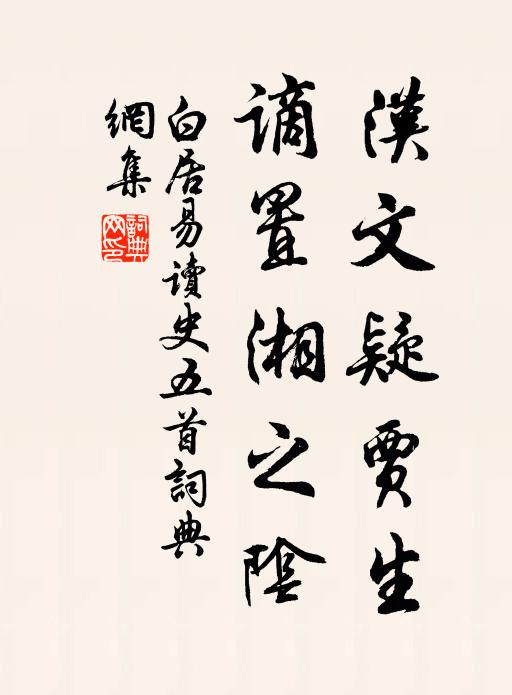 漢文疑賈生
謫置湘之陰
白居易讀史五首詞典
網集
詞典網印